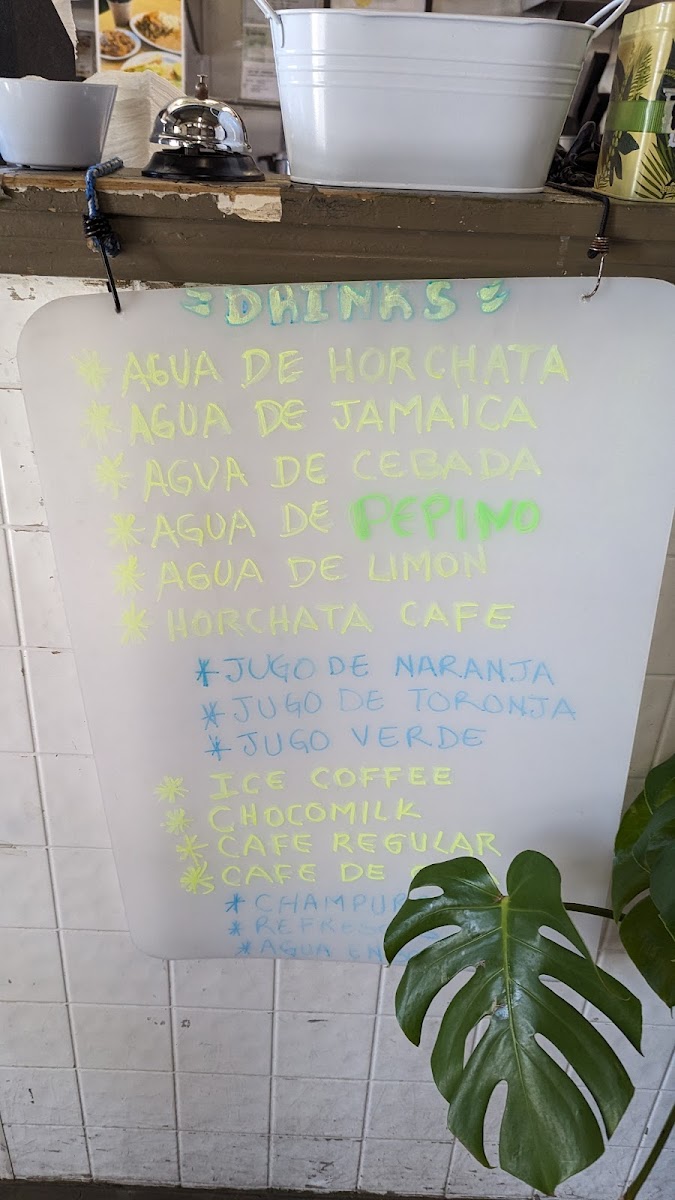 DRINKS
* AGUA DE HORCHATA
* AGUA DE JAMAICA
* AGUA DE CEBADA
* AGUA DE PEPINO
* AGUA DE LIMON
* HORCHATA CAFE
* JUGO DE NARANJA
* JUGO DE TORONJA
* JUGO VERDE
* ICE COFFEE
* CHOCOMILK
* CAFE REGULAR
* CAFE DE
*
*
* AGUA